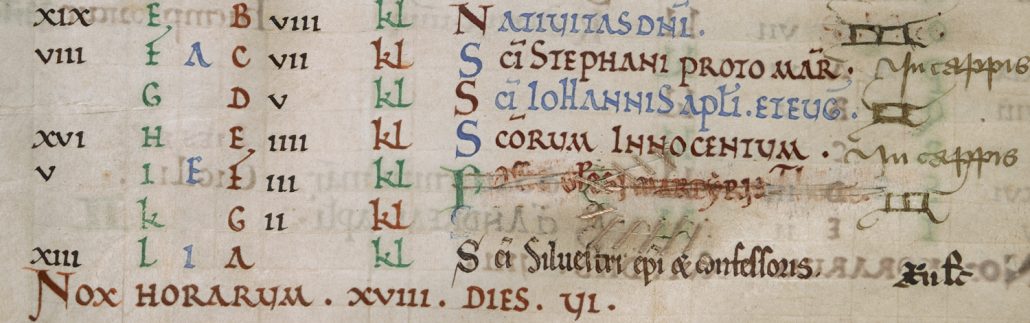 XIX E B VIII kl NATIVITAS DNI.
VIII F A C VII kl SCI STEPHANI PROTOMAR. In cappis
G D V kl SCI IOHANNIS APLI. ET EUG.
XVI H E IIII kl SCORUM INNOCENTUM. In cappis
V I E F III kl
K G II kl
XIII L I A kl Sci Silvestri epi & confessoris.
NOX HORARUM. XVIII. DIES. VI.